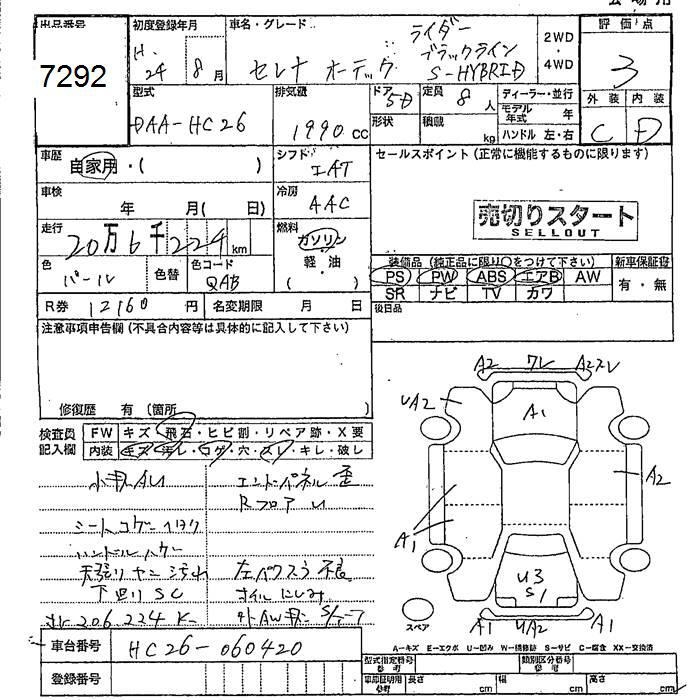 出品番号 初度登録年月 車名・グレード 評価点
7292 H. 24年 8月 セレナ オーテック ライダー ブラックライン S-HYBRID 2WD・4WD 3
型式 排気量 ドア 5D 定員 8人 ディーラー・並行 外装 内装
DAA-HC26 1990cc 形状 積載 kg モデル年式 年 C D
ハンドル 左・右
車歴 自家用・( ) シフト IAT セールスポイント(正常に機能するものに限ります)
車検 年 月( 日) 冷房 AAC
売切りスタート
SELLOUT
走行 20万6千224km 燃料 ガソリン・軽・油 ( )
装備品(純正品に限り○をつけて下さい) 新車保証書
色 パール 色替 色コード QAB PS PW ABS エアB AW 有・無
SR ナビ TV カワ
R券 12160円 名変期限 月 日 後日品
注意事項申告欄(不具合内容等は具体的に記入して下さい)
修復歴 有(箇所 )
検査員記入欄 FW キズ・飛石・ヒビ割・リペア跡・X要
内装 キズ・汚レ・コゲ・穴・スレ・キレ・破し
小キズAU エンドパネル歪
RフロアU
シートコゲ
ハンドル
天張りヤニ汚れ 左 不良
下廻りSC オイルにじみ
206.224K 外AW
A2 ワレ A2スレ
UA2 A1
A2
A1
U3
S1
A1 UA2 A1
スペア
A-キズ E-エクボ U-凹み W-補修跡 S-サビ C-腐食 XX-交換済
車台番号 HC26-060420
型式指定番号 参考 類別区分番号 参考
登録番号 車庫証明用 参考 長さ cm 幅 cm 高さ cm